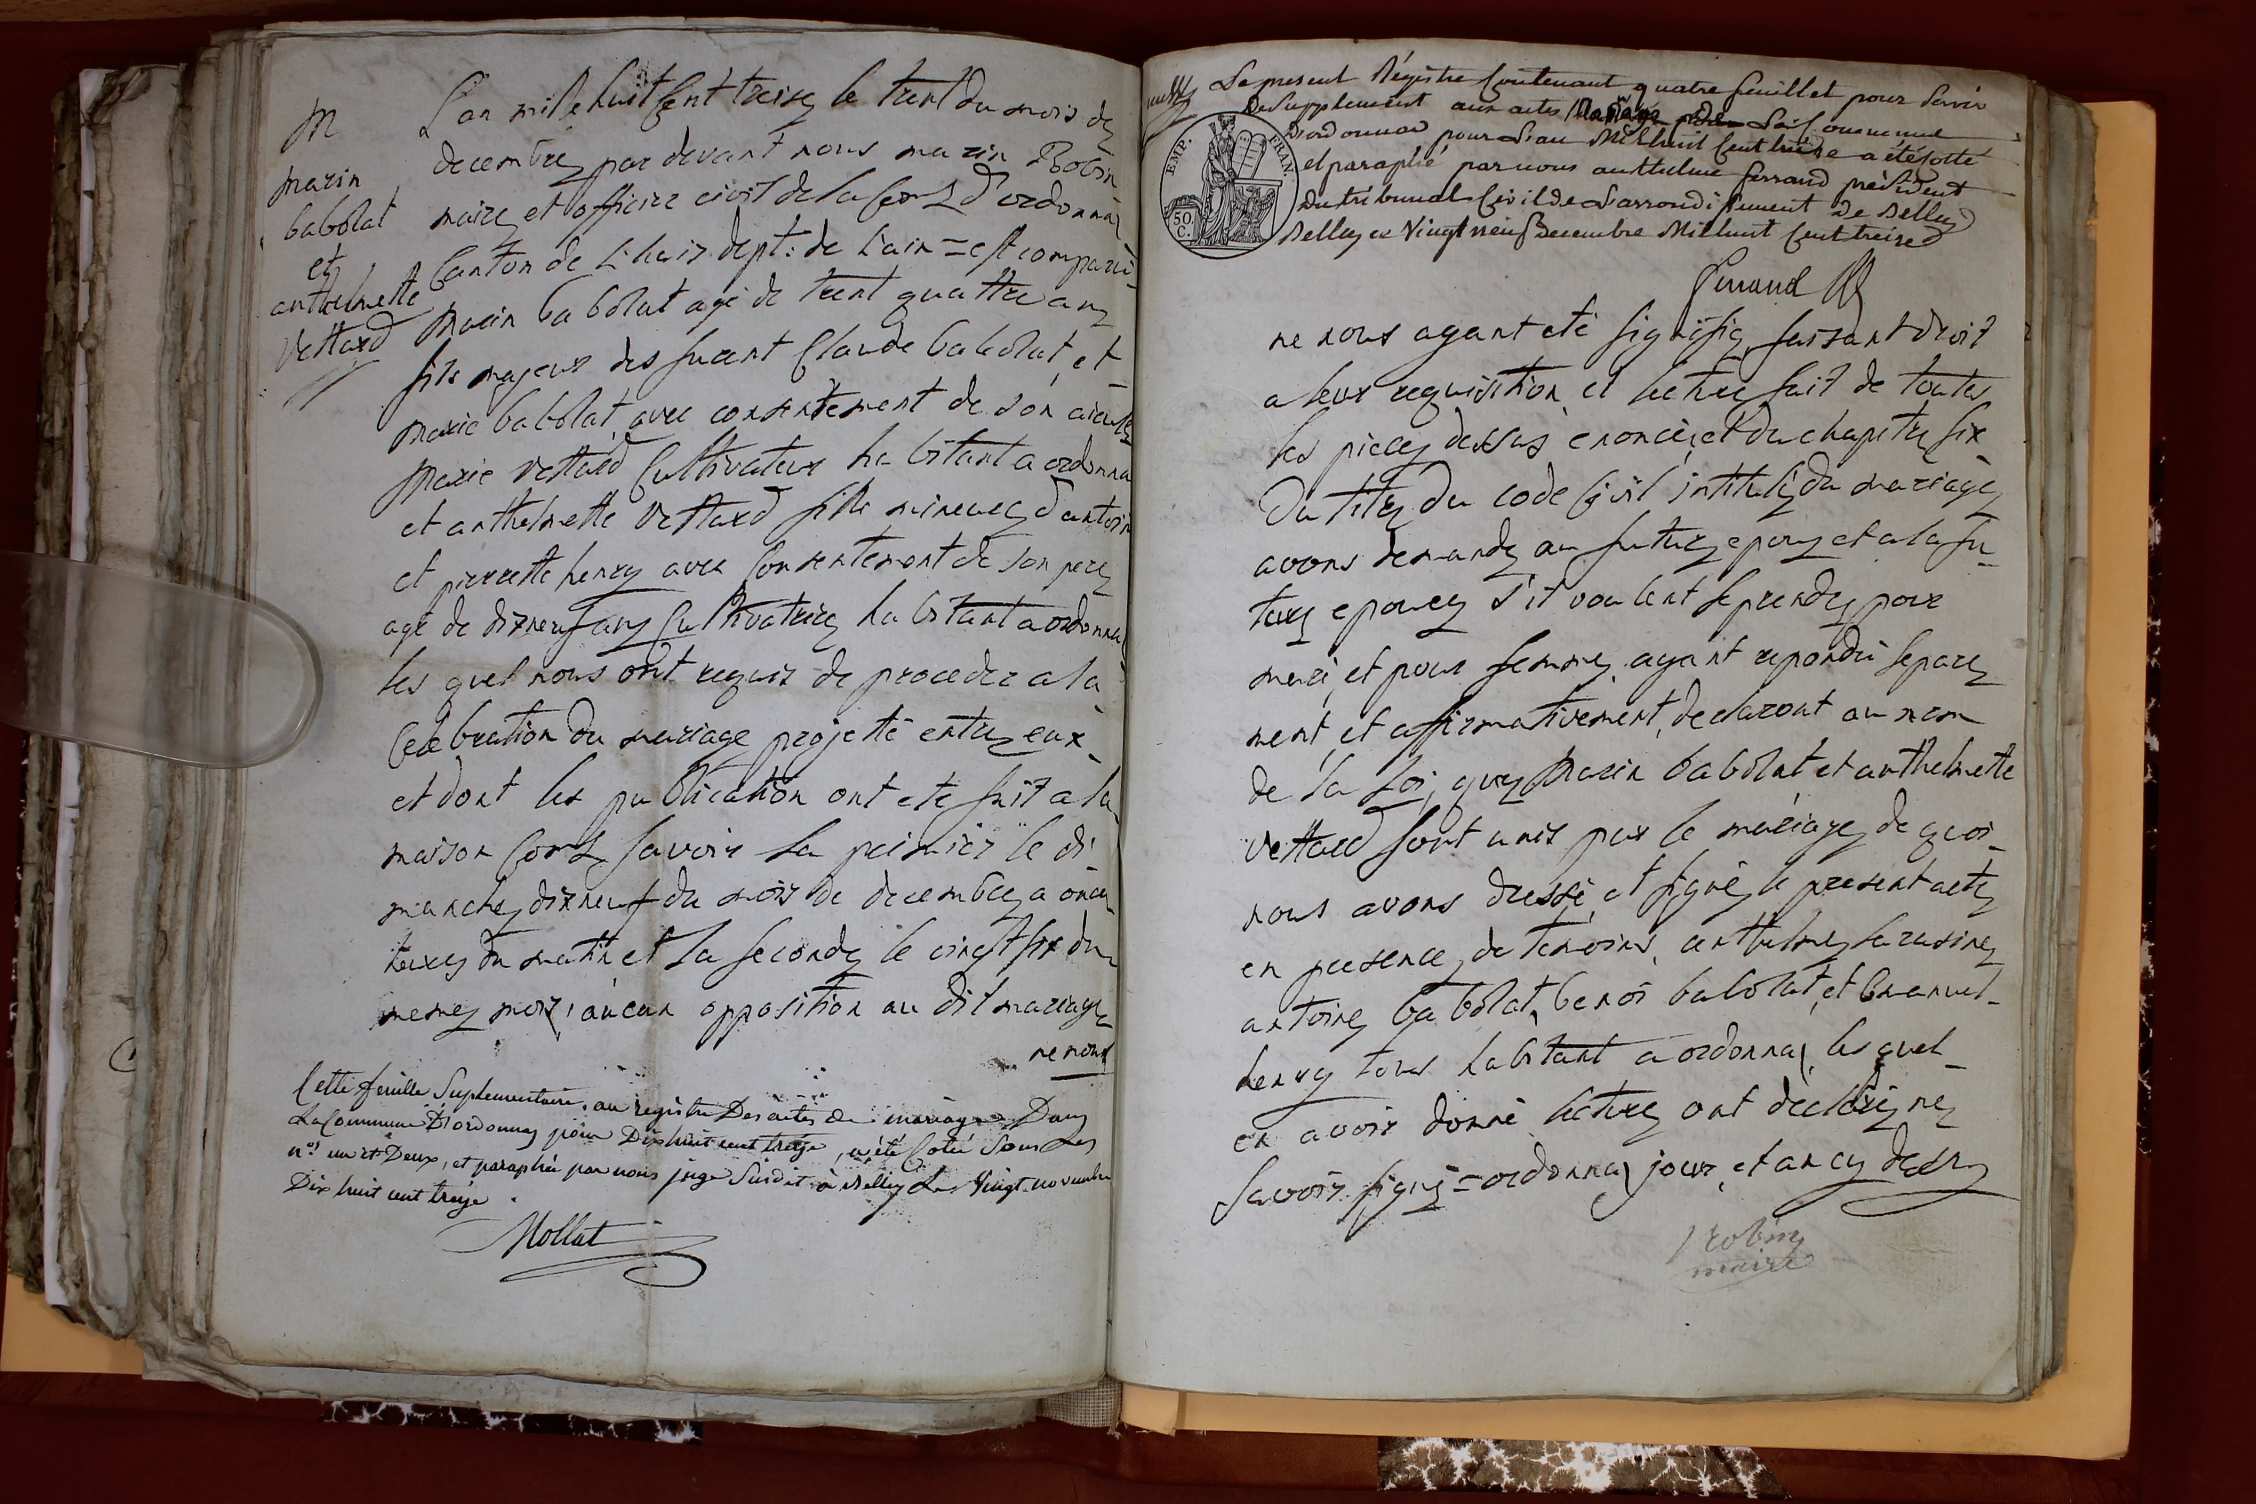 M
marin
babolat
et
anthelmette
vettard
L'an mille huit Cent treize le trent du mois de
decembre par devant nous marin Robin
maire et officier civil de la Com.e d'ordonnaz
Canton de Lhuis dept: de L'ain = est comparu
marin babolat agé de trent quattre ans
fils majeur des furent Claude babolat, et
marie babolat avec consentement de son aieule
marie vettard Cultivateur habitant a ordonna
et anthelmette vettard fille mineure d'antoin
et pierrette henry avec Consentement de son pere
agé de dixneuf ans Cultivatrice habitant a ordonnaz
les quel nous ont requis de proceder a la
Celebration du mariage projetté entre eux
et dont les publication ont eté fait a la
maison Com.e Savoir La premier le di-
manche dixneuf du mois de decembre a once
heures du matin et la seconde le vingt six du
meme mois, aucun opposition au dit mariage
ne nous
Cette feuille Suplementaire au registre Des actes de mariage Dans
La Commune D'ordonnaz pour Dix huit cent treize, a été Cotée Sous Les
n.os un et Deux, et paraphée par nous juge Susdit à Belley Le Vingt novembre
Dix huit cent treize.
Mollat
Le present Régistre Contenant quatre feuillet pour Servir
De Supplement aux actes Mariage de La Commune
D'ordonnaz pour L'an Mil huit Cent treize a été Cotté
et paraphé par nous anthelme ferrand président
Du tribunal Civil de L'arrondissement de Belley
Belley ce Vingt neuf Decembre Mil huit Cent treize
EMP. FRAN.
50.
C.
ferrand
ne nous ayant eté signifié, faisant droit
a leur requisition, et lecture fait de toutes
les pieces dessus enoncé, et du chapitre six
Du titre du code Civil intitulé du mariage
avons demandé au future epoux et a la fu-
ture epouse s'il voulent se prendre pour
mari, et pour femme, ayant repondu separe
ment, et affirmativement, declaront au nom
de la loi, que Marin babolat et anthelmette
vettard sont unis par le mariage de quoi
nous avons dressé, et signé le present acte
en presence de temoins, anthelme sarasine,
antoine babolat, benoi babolat, et Emanuel
henry tous habitant a ordonnaz, les quel
en avoir donné lecture ont declaré ne
savoir signé = ordonnaz jour, et an cy dessus
Robin
maire